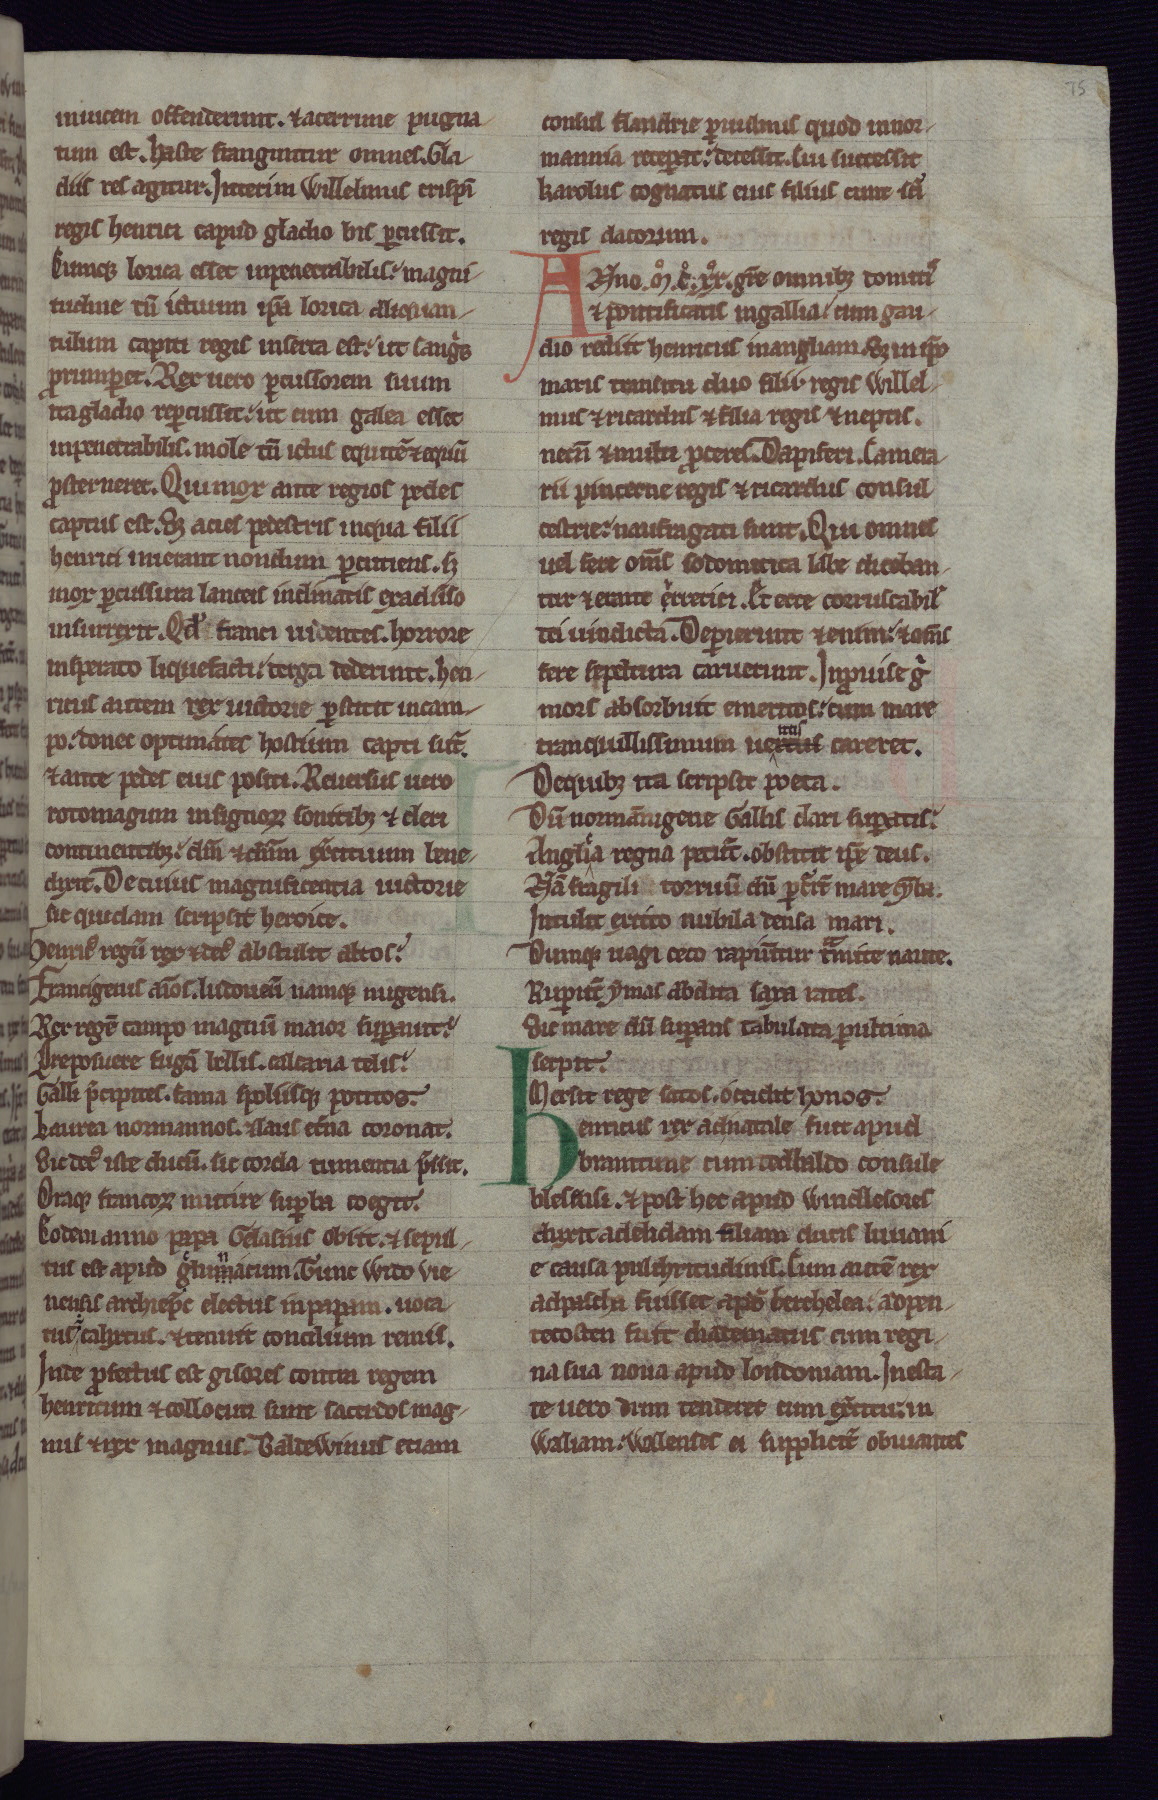 75
inuicem offenderunt. & acerrime pugna
tum est. Haste franguntur omnes. Gla
diis res agitur. Interim Willelmus crispī
regis henrici capud gladio bis pcussit.
Cumq; lorica esset inpenetrabilis: magni
tudine tn̄ ictuum ip̄a lorica aliquan
tulum capiti regis inserta est: ut sangis
prumperet. Rex uero pcussorem suum
ita gladio repcussit: ut cum galea esset
inpenetrabilis. mole tn̄ ictus equitē & equū
psterneret. Qui mox ante regios pedes
captus est. Sz acies pedestris inqua filii
henrici inierant nondum pcutiens. sz
mox pcussura lanceis inclinatis exaduso
insurrexit. Qd' franci uidentes. horrore
insperato liquefacti: terga dederunt. hen
ricus autem rex uictorie pstitit incam
po: donec optimates hostium capti sūt.
& ante pedes eius positi. Reuersus uero
rotomagum insignioz sonitibz & cleri
continentibz: dm̄ & dn̄m exercituum bene
dixit. Decuius magnificentia uictorie
sic quidam scripsit heroice.
Henric' regū rex & dec' abstulit altos:
Francigenis aīos. ludouicū namq; nugensi.
Rex regē campo magnū maior supauit:
Preposuere fugā bellis. calcaria telis:
Galli p̄cipites. fama spoliisq; potitos:
Laurea normannos. & laus etn̄a coronat.
Sic dec' iste ducū. sic corda tumentia p̄ssit.
Oraq; francoz mutire supba coegit:
Eodem anno papa Gelasius obiit. & sepul
tus est apud cluniacum. Tunc Wido vie
nensis archiepc electus inpapam. uoca
tus calixtus. & tenuit concilium remis.
Inde pfectus est gisores contra regem
henricum & collocuti sunt sacerdos mag
nus & rex magnus. Baldewinus etiam
consul flandrie puulnus quod innor
mannia receperat: decessit. Cui successit
karolus cognatus eius filius cnut sc̄i
regis dacorum.
Anno. m̊. c̊. xx̊. gr̄e omnibz domitis
& pontificatis ingallia: cum gau
dio rediit henricus inangliam. Sz in ipō
maris transitu duo filii regis Willel
mus & ricardus & filia regis & neptis.
necn̄ & multi pceres. Dapiferi. Camera
rii pincerne regis & ricardus consul
cestrie: naufragati sunt. Qui omnes
uel fere om̄s sodomitica labe diceban
tur & erant irretiti. Et ecce corruscabil'
dei uindicta. Deperierunt & enim: & om̄s
fere sepeltura caruerunt. Inprouise g̊
mors absorbuit emeritos: cum mare
tranquillissimum uentis careret.
Dequibz ita scripsit poeta.
Dū normānigene Gallis clari supatis:
Anglica regna petūt. obstitit ip̄e deus.
Nā fragili toruū dū pc̄rit mare cyba.
Intulit excito nubila densa mari.
Dumq; uagi ceco rapiūtur tramite naute.
Ruperūt ymas abdita saxa rates.
Sic mare dū supans tabulata pultima
serpit:
Mersit rege satos. occidit honos:
Henricus rex adnatale fuit apud
bramtune cum tedbaldo consule
blessensi. & post hec apud windlesores
duxit adelidam filiam ducis luuani
e causa pulchritudinis. Cum autē rex
adpascha fuisset apd' berchelea: adpen
tecosten fuit diatematus cum regi
na sua noua apud londoniam. Inesta
te uero dum tenderet cum exercitu: in
waliam: walenses ei supplicit̄ obuiantes